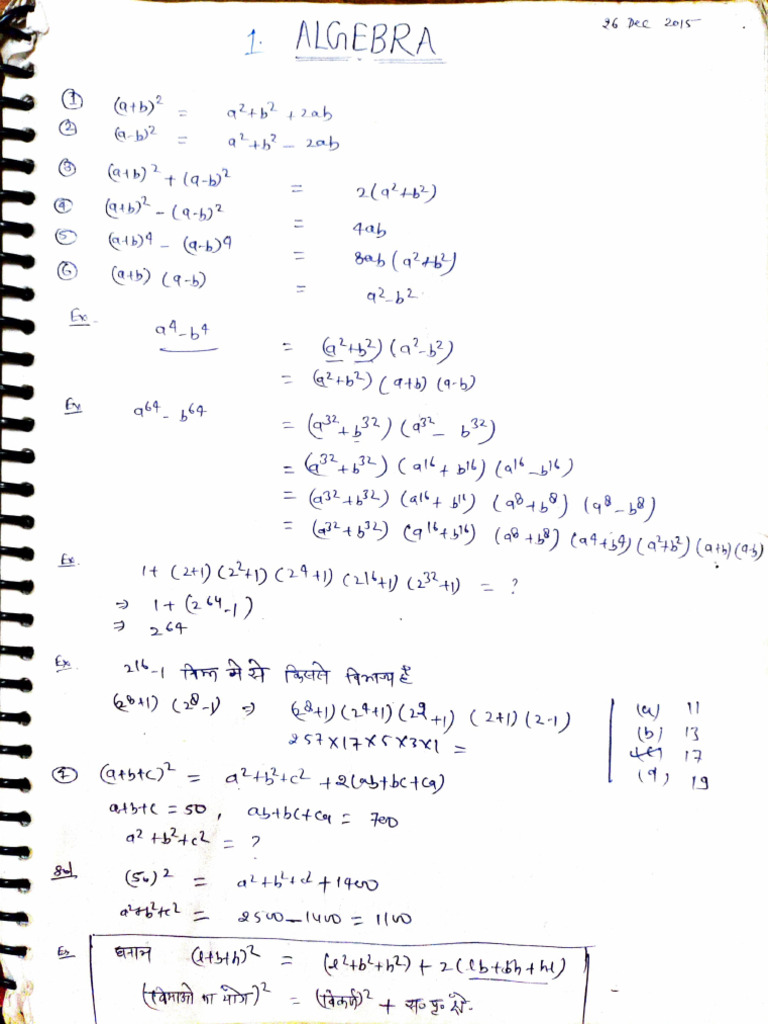 26 Dec 2015
1. ALGEBRA
① (a+b)² = a²+b²+2ab
② (a-b)² = a²+b²-2ab
③ (a+b)²+(a-b)² = 2(a²+b²)
④ (a+b)²-(a-b)² = 4ab
⑤ (a+b)⁴-(a-b)⁴ = 8ab(a²+b²)
⑥ (a+b)(a-b) = a²-b²
Ex. a⁴-b⁴ = (a²+b²)(a²-b²)
= (a²+b²)(a+b)(a-b)
Ex a⁶⁴-b⁶⁴ = (a³²+b³²)(a³²-b³²)
= (a³²+b³²)(a¹⁶+b¹⁶)(a¹⁶-b¹⁶)
= (a³²+b³²)(a¹⁶+b¹⁶)(a⁸+b⁸)(a⁸-b⁸)
= (a³²+b³²)(a¹⁶+b¹⁶)(a⁸+b⁸)(a⁴+b⁴)(a²+b²)(a+b)(a-b)
Ex. 1+(2+1)(2²+1)(2⁴+1)(2¹⁶+1)(2³²+1) = ?
⇒ 1+(2⁶⁴-1)
⇒ 2⁶⁴
Ex 2¹⁶-1 निम्न मे से किससे विभाज्य हैं
(2⁸+1)(2⁸-1) ⇒ (2⁸+1)(2⁴+1)(2²+1)(2+1)(2-1)
257×17×5×3×1 =
(a) 11
(b) 13
(c) 17
(d) 19
⑦ (a+b+c)² = a²+b²+c²+2(ab+bc+ca)
a+b+c = 50, ab+bc+ca = 700
a²+b²+c² = ?
Sol (50)² = a²+b²+c²+1400
a²+b²+c² = 2500-1400 = 1100
Ex घनाभ (l+b+h)² = (l²+b²+h²)+2(lb+bh+hl)
(विमाओ का योग)² = (विकर्ण)² + स० पृ० क्षे०